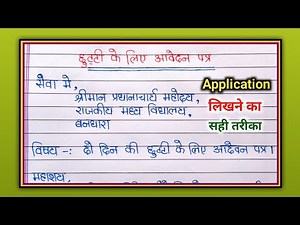 छुट्टी के लिए आवेदन पत्र
सेवा में,
श्रीमान प्रधानाचार्य महोदय,
राजकीय मध्य विद्यालय,
बनधारा
विषय -: दो दिन की छुट्टी के लिए आवेदन पत्र।
महाशय,
Application
लिखने का
सही तरीका